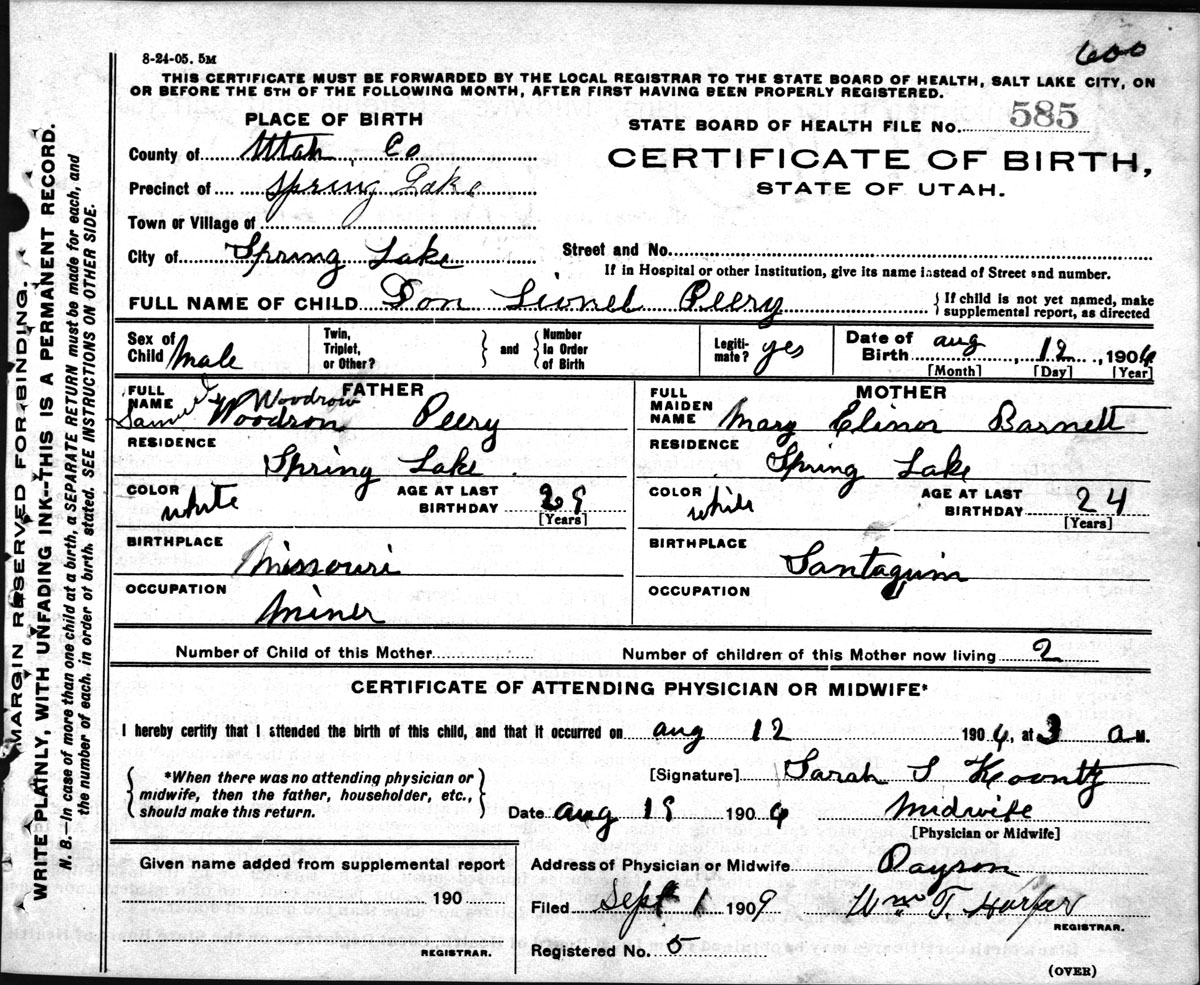 600
8-24-05. 5M
THIS CERTIFICATE MUST BE FORWARDED BY THE LOCAL REGISTRAR TO THE STATE BOARD OF HEALTH, SALT LAKE CITY, ON
OR BEFORE THE 5TH OF THE FOLLOWING MONTH, AFTER FIRST HAVING BEEN PROPERLY REGISTERED.
PLACE OF BIRTH
STATE BOARD OF HEALTH FILE No. 585
County of Utah, Co
CERTIFICATE OF BIRTH,
STATE OF UTAH.
Precinct of Spring Lake
Town or Village of
City of Spring Lake
Street and No.
If in Hospital or other Institution, give its name instead of Street and number.
FULL NAME OF CHILD Don Lionel Peery
{ If child is not yet named, make
supplemental report, as directed
Sex of Child Male
Twin, Triplet, or Other? } and { Number In Order of Birth
Legiti-mate? yes
Date of Birth Aug, 12, 1906
[Month] [Day] [Year]
FATHER
FULL NAME Samuel Woodrow Peery
Woodrow
MOTHER
FULL MAIDEN NAME Mary Elinor Barnett
RESIDENCE Spring Lake
RESIDENCE Spring Lake
COLOR white
AGE AT LAST BIRTHDAY 29
[Years]
COLOR white
AGE AT LAST BIRTHDAY 24
[Years]
BIRTHPLACE Missouri
BIRTHPLACE Santaquin
OCCUPATION Miner
OCCUPATION
Number of Child of this Mother
Number of children of this Mother now living 2
CERTIFICATE OF ATTENDING PHYSICIAN OR MIDWIFE*
I hereby certify that I attended the birth of this child, and that it occurred on Aug 12 1906, at 3 a M.
{ *When there was no attending physician or
midwife, then the father, householder, etc.,
should make this return. }
[Signature] Sarah S Koontz
Date Aug 19 1906 Midwife
[Physician or Midwife]
Given name added from supplemental report
190
REGISTRAR.
Address of Physician or Midwife Payson
Filed Sept 1 1909 Wm T. Harper
REGISTRAR.
Registered No. 5
(OVER)
MARGIN RESERVED FOR BINDING.
WRITE PLAINLY, WITH UNFADING INK--THIS IS A PERMANENT RECORD.
N. B.—In case of more than one child at a birth, a SEPARATE RETURN must be made for each, and
the number of each, in order of birth, stated. SEE INSTRUCTIONS ON OTHER SIDE.